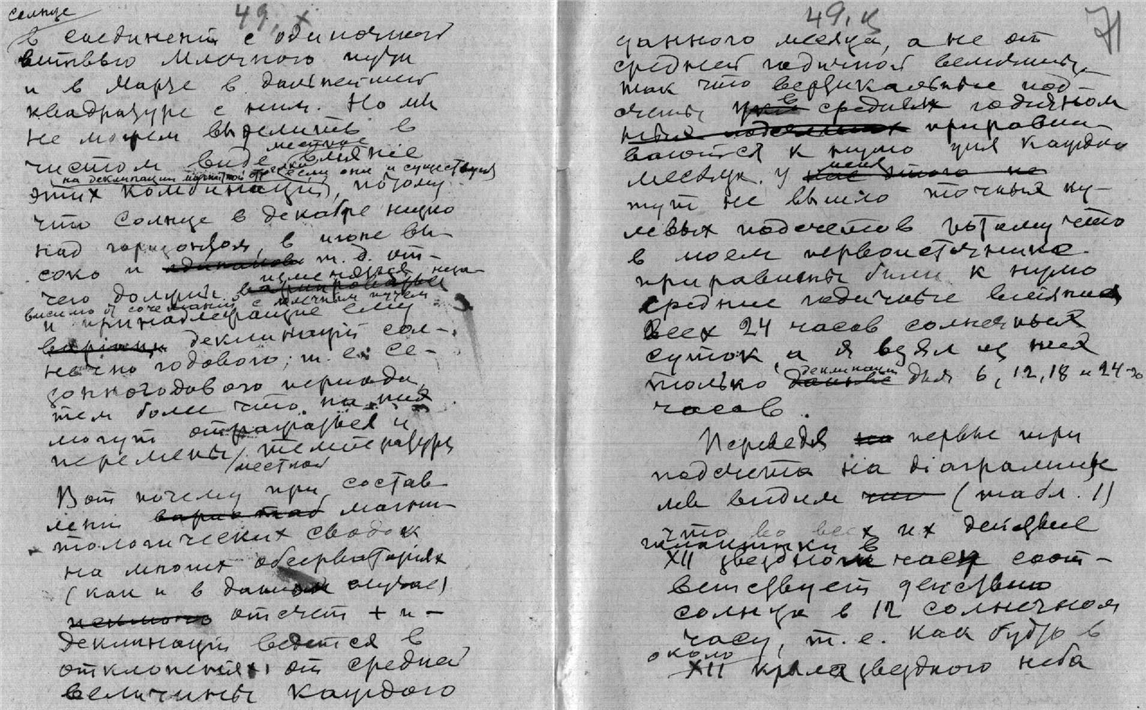 49, х
солнце
в соединении с одиночной
ветвью Млечного пути
и в Марте в дальнейшей
квадратуре с ним. Но мы
не можем выделить в
местное
чистом виде влияние
на деклинации магнитной стрелки если они и существуют
этих комбинаций, потому
что солнце в декабре низко
над горизонтом, в июне вы-
соко и т. д. от-
изменяться неза-
чего должны
висимо от сочетаний с млечным путем
и принадлежащие ему
деклинаций сол-
нечно годового, т. е. се-
зонногодового периода,
тем более что на них
могут отражаться и
перемены температуры
местной
Вот почему при состав-
лении магни-
тологических сводок
на многих обсерваториях
(как и в данном случае)
отсчет + и -
деклинаций ведется в
отклонениях от средней
величины каждого
49, ц
71
данного месяца, а не от
средней годичной величины,
так что вертикальные под-
счеты в среднем годичном
приравни-
ваются к нулю для каждого
меня
месяца. У
тут не вышло точных ну-
левых подсчетов потому что
в моем первоисточнике
приравнены были к нулю
средние годичные влияния
всех 24 часов солнечных
суток, а я взял из них
деклинации
только для 6, 12, 18 и 24-го
часов.
Переведя первые три
подсчета на диаграммы
мы видим (табл. 1)
что во всех их действие
галактики в
XII звездном часу соот-
ветствует действию
солнца в 12 солнечном
часу, т. е. как будто в
около
XII крыла звездного неба